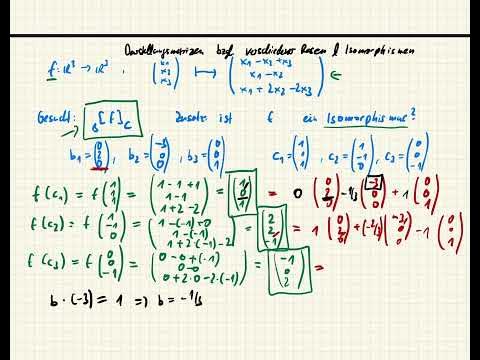 Darstellungsmatrizen bzgl verschiedener Basen & Isomorphismen
f: ℝ³ → ℝ³, (x1 x2 x3) ↦ (x1 - x2 + x3 x1 - x2 x1 + 2x2 - 2x3) ←
Gesucht: → B[f]C Zusatz ist f ein Isomorphismus?
b1 = (0 2 0), b2 = (-3 0 0), b3 = (0 0 1) c1 = (1 1 1), c2 = (1 -1 0), c3 = (0 0 -1)
f(c1) = f(1 1 1) = (1-1+1 1-1 1+2-2) = (1 0 1) = 0 (0 2 0) -1/3 (-3 0 0) + 1 (0 0 1)
f(c2) = f(1 -1 0) = (1-(-1)+0 1-(-1) 1+2(-1)-2) = (2 2 -1) = 1 (0 2 0) + (-2/3) (-3 0 0) - 1 (0 0 1)
f(c3) = f(0 0 -1) = (0-0+(-1) 0-0 0+2·0-2·(-1)) = (-1 0 2) =
b·(-3) = 1 ⇒ b = -1/3